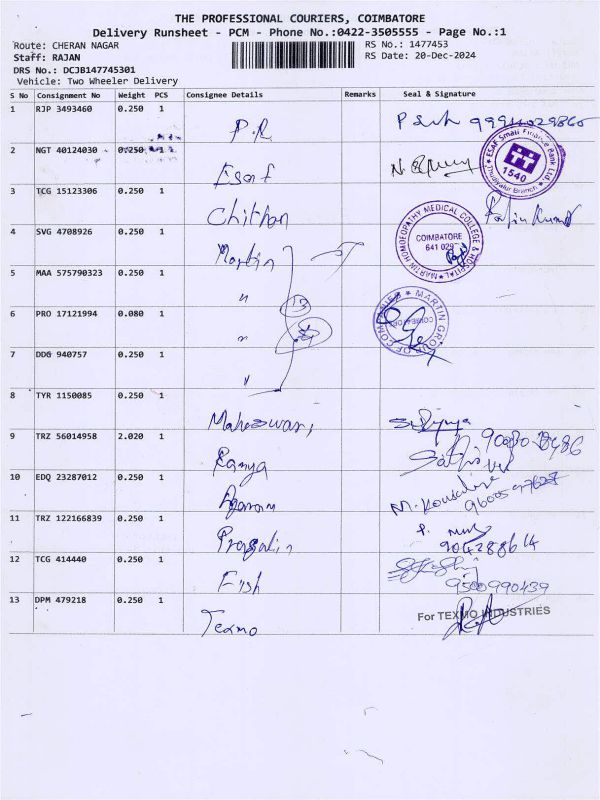 THE PROFESSIONAL COURIERS, COIMBATORE
Delivery Runsheet - PCM - Phone No.:0422-3505555 - Page No.:1
Route: CHERAN NAGAR RS No.: 1477453
Staff: RAJAN RS Date: 20-Dec-2024
DRS No.: DCJB147745301
Vehicle: Two Wheeler Delivery
S No Consignment No Weight PCS Consignee Details Remarks Seal & Signature
1 RJP 3493460 0.250 1
P.R
2 NGT 40124030 0.250 1
Esaf
ESAF Small Finance Bank Ltd.
1540
3 TCG 15123306 0.250 1
Chithan
4 SVG 4708926 0.250 1
Martin
MARTIN HOMOEOPATHY MEDICAL COLLEGE & HOSPITAL
COIMBATORE
641 029
5 MAA 575790323 0.250 1
"
6 PRO 17121994 0.080 1
"
MARTIN GROUP OF COMPANIES
7 DDG 940757 0.250 1
"
8 TYR 1150085 0.250 1
Maheswari
9 TRZ 56014958 2.020 1
Ramya
10 EDQ 23287012 0.250 1
11 TRZ 122166839 0.250 1
12 TCG 414440 0.250 1
Fish
13 DPM 479218 0.250 1
Texmo
For TEXMO INDUSTRIES